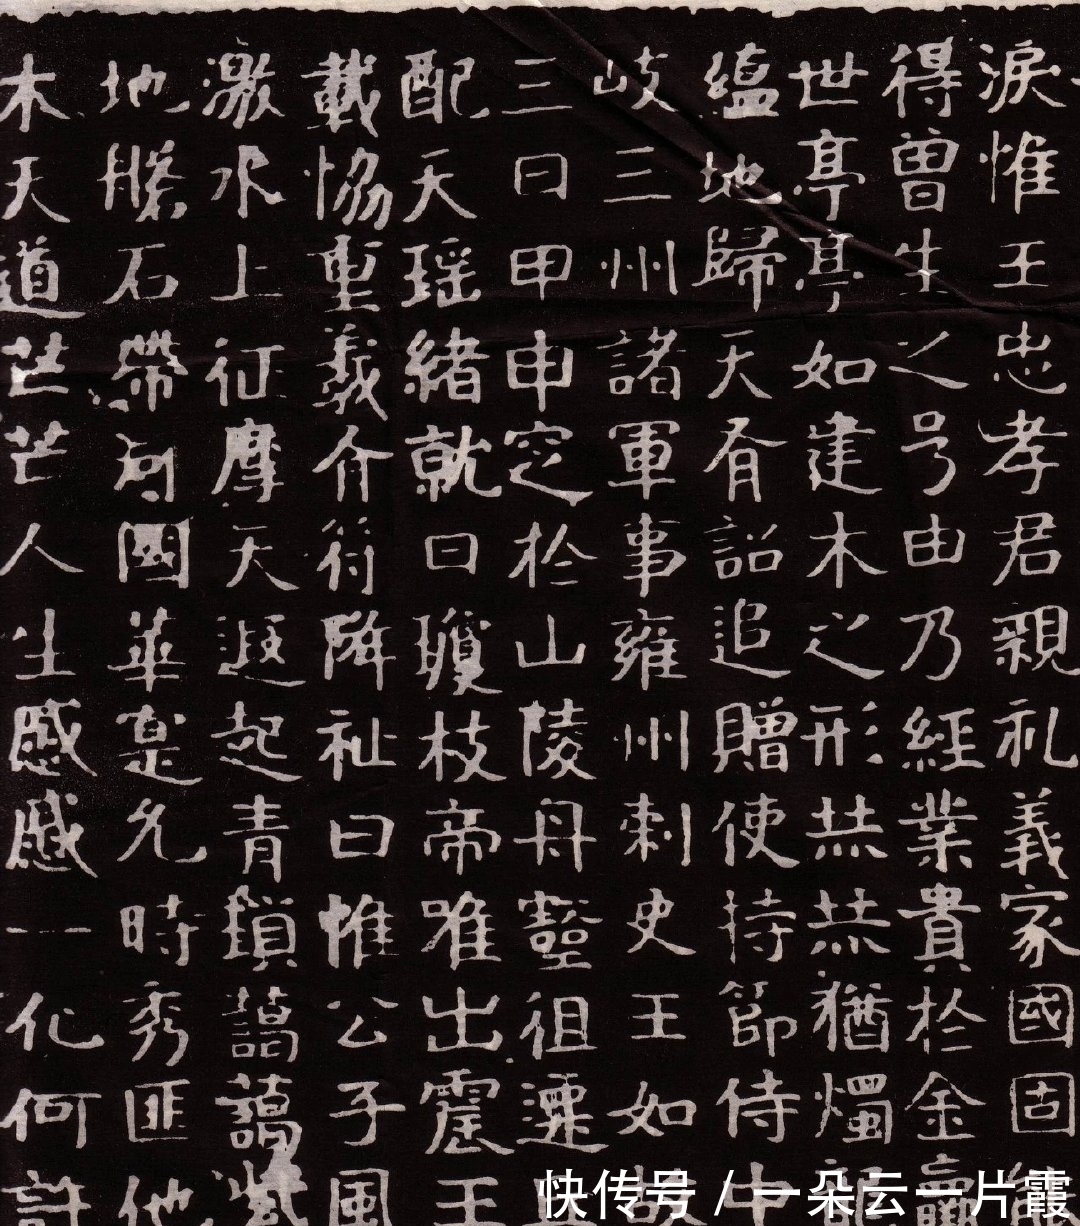 淚惟王忠孝君親礼義家國固
得曽生之号由乃經業貴於金
世亭亭如建木之形㷊㷊猶燭
緼地歸天有詔追贈使持節侍中
岐三州諸軍事雍州刺史王如故
三日甲申窆於山陵丹壑徂遷
配天瑶緒就日瓊枝帝唯出震王
載協重義介符降祉曰惟公子風
激水上征摩天遐起青鎖藹藹
地勝石帶河國華是允時秀匪他
木天道芒芒人生慼慼一化何許
快传号 / 一朵云一片霞